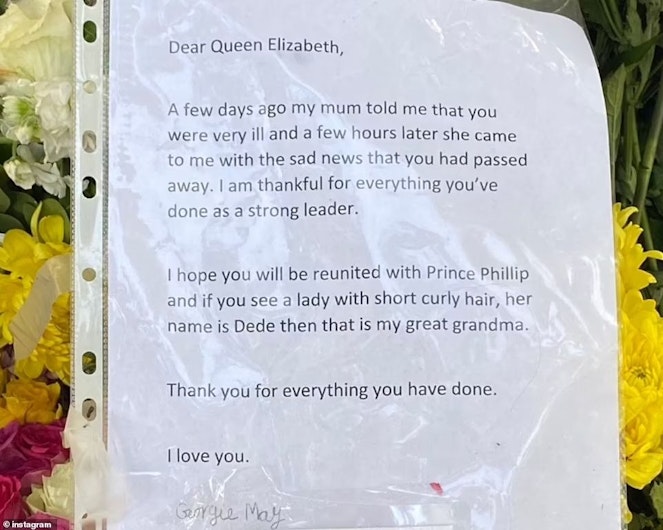 Dear Queen Elizabeth,
A few days ago my mum told me that you
were very ill and a few hours later she came
to me with the sad news that you had passed
away. I am thankful for everything you've
done as a strong leader.
I hope you will be reunited with Prince Phillip
and if you see a lady with short curly hair, her
name is Dede then that is my great grandma.
Thank you for everything you have done.
I love you.
Georgie May
© instagram